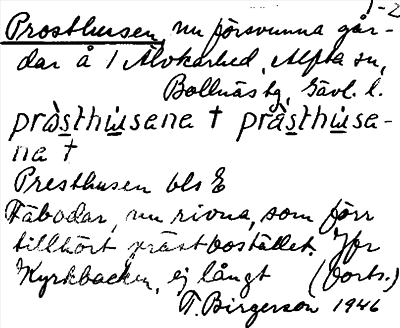 1-2
Prosthusen, nu försvunna går-
dar å 1 Älvkarhed, Alfta sn,
Bollnäs tg, Gävl. l.
pràsthusena † pråsthusa-
na †
Presthusen bls E
Fäbodar, nu rivna, som förr
tillhört prästbostället. Jfr
Kyrkbacken, ej långt (forts.)
T. Birgerson 1946